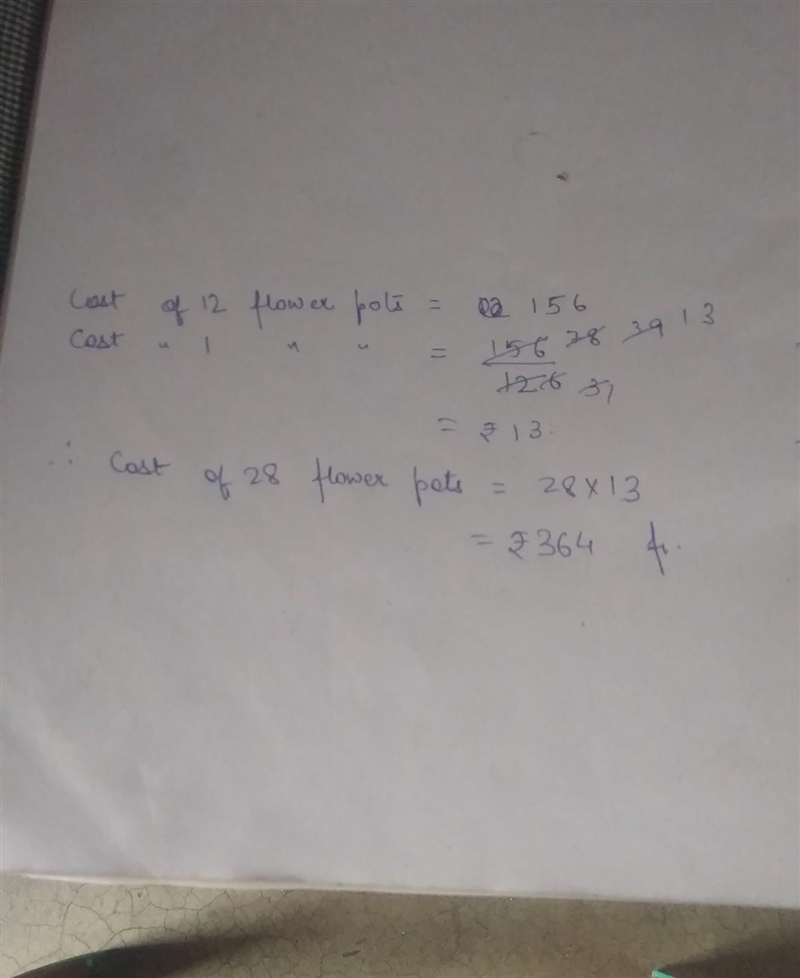 Cost of 12 flower pots = 156
Cost " 1 " " = 156 78 39 13
12 6 3 1
= ₹ 13.
∴ Cost of 28 flower pots = 28 × 13
= ₹ 364